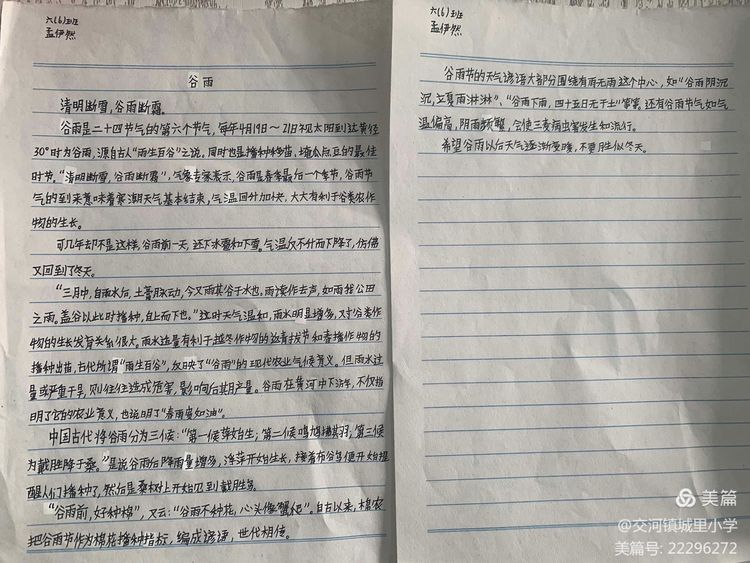 六(6)班
孟伊然
谷雨
清明断雪,谷雨断霜。
谷雨是二十四节气的第六个节气,每年4月19日～21日视太阳到达黄经
30°时为谷雨,源自古人“雨生百谷”之说。同时也是播种移苗、埯瓜点豆的最佳
时节。“清明断雪,谷雨断霜”,气象专家表示,谷雨是春季最后一个季节,谷雨节
气的到来意味着寒潮天气基本结束,气温回升加快,大大有利于谷类农作
物的生长。
可几年却不是这样,谷雨前一天,还下冰雹和下雪。气温仅不升而下降了,仿佛
又回到了冬天。
“三月中,自雨水后,土膏脉动,今又雨其谷于水也。雨读作去声,如雨我公田
之雨。盖谷以此时播种,自上而下也。”这时天气温和,雨水明显增多,对谷类作
物的生长发育关系很大。雨水适量有利于越冬作物的返青拔节和春播作物的
播种出苗,古代所谓“雨生百谷”,反映了“谷雨”的现代农业气候意义。但雨水过
量或严重干旱,则往往造成危害,影响后其月产量。谷雨在黄河中下游,不仅指
明了它的农业意义,也说明了“春雨贵如油”。
中国古代将谷雨分为三候:“第一候萍始生;第二候鸣鸠拂其羽;第三候
为戴胜降于桑。”是说谷雨后降雨量增多,浮萍开始生长,接着布谷鸟便开始提
醒人们播种了,然后是桑树上开始见到戴胜鸟。
“谷雨前,好种棉”,又云:“谷雨不种花,心头像蟹爬”。自古以来,棉农
把谷雨节作为棉花播种指标,编成谚语,世代相传。
六(6)班
孟伊然
谷雨节的天气谚语大部分围绕有雨无雨这个中心,如“谷雨阴沉
沉,立夏雨淋淋”、“谷雨下雨,四十五日无干土”等等,还有谷雨节气如气
温偏高,阴雨频繁,会使三麦病虫害发生和流行。
希望谷雨以后天气逐渐变暖,不要胜似冬天。
美篇
@交河镇城里小学
美篇号: 22296272